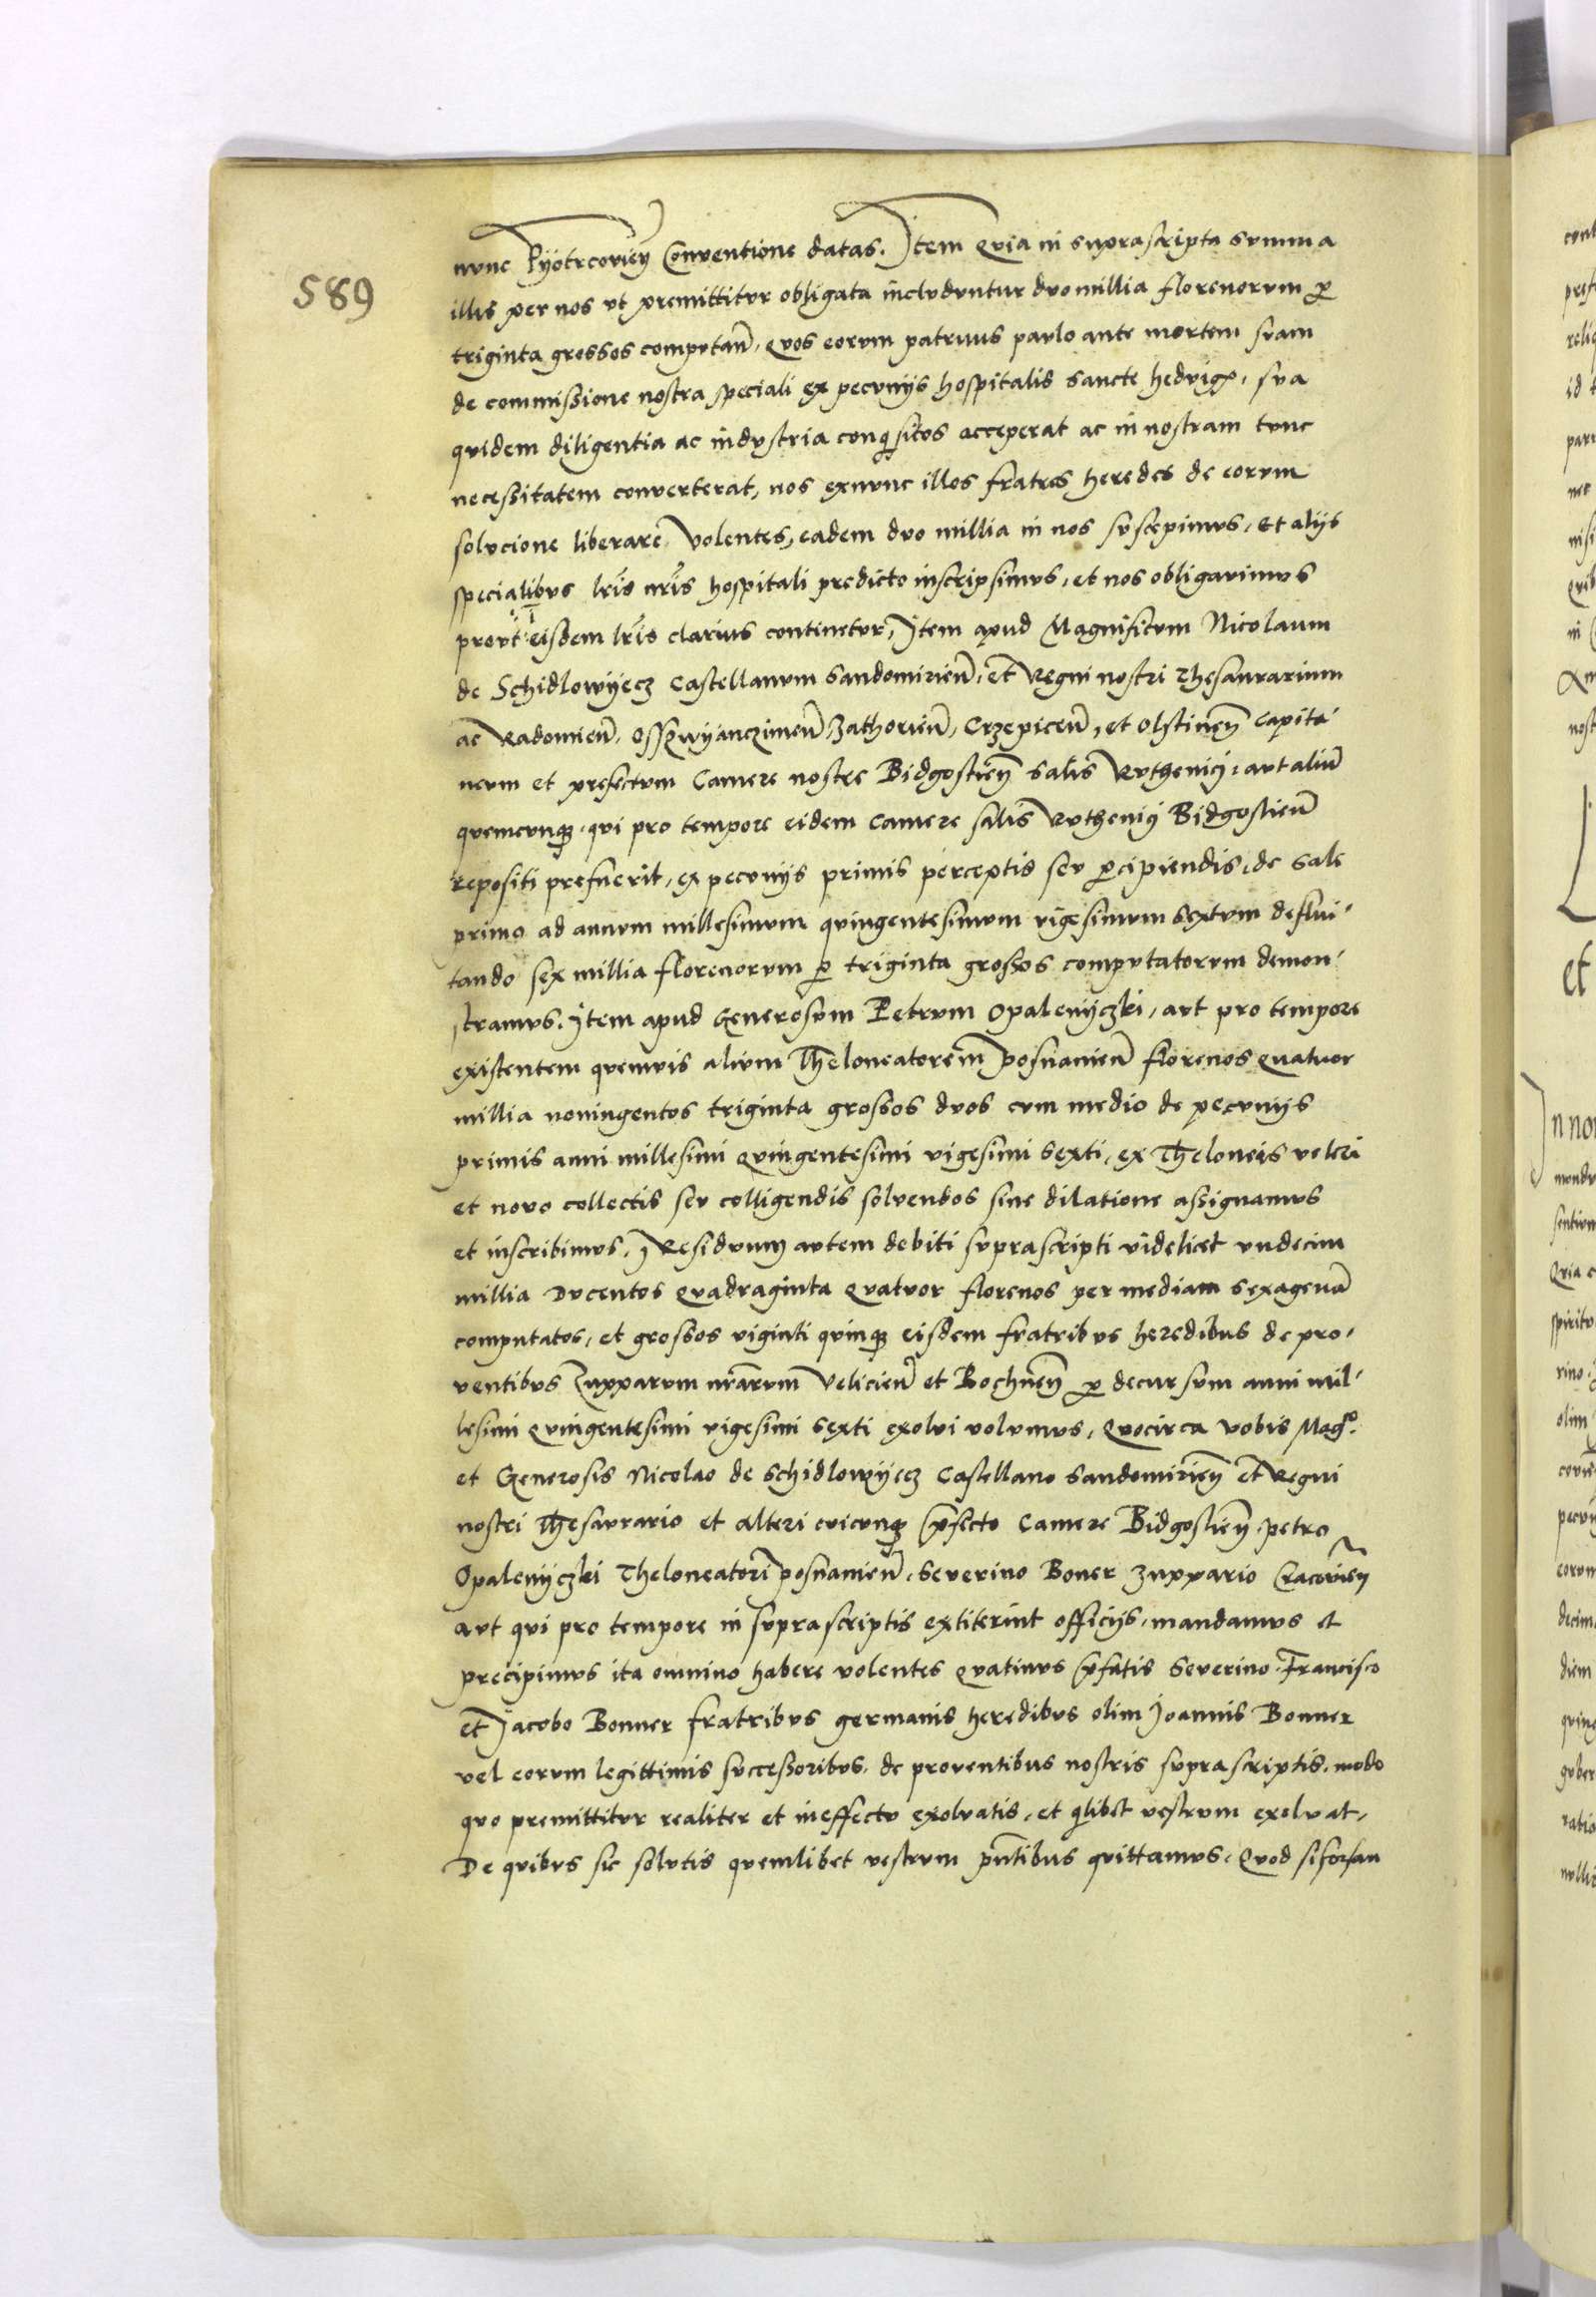 589
nvnc Pyotrcovien̄ Conventione datas. Item qvia in svprascripta svmma
illis per nos vt premittitvr obligata inclvdvntur dvo millia florenorvm ꝑ
triginta grossos compvtan̄, qvos eorvm patruus pavlo ante mortem svam
de commissione nostra speciali ex pecvnijs hospitalis sancte hedvigis, sva
qvidem diligentia ac indvstria conqsitos acceperat ac in nostram tvnc
necessitatem converterat, nos exnvnc illos fratres heredes de eorvm
solvcione liberare volentes, eadem dvo millia in nos svscepimvs, et alijs
specialibvs lr̄is nr̄is hospitali predicto inscripsimvs, et nos obligavimvs
provt in eisdem lr̄is clarius continetvr, Item apud Magnificvm Nicolaum
de Schidlowyecz Castellanvm Sandomirien̄, et Regni nostri Thesaurarium
ac Radomien̄, Osswyanczimen̄, Zathorien̄, Crzepicen̄, et Olstinen̄ Capita-
nevm et prefectvm Camere nostre Bidgostien̄ salis Rvthenici, avt aliv̄
qvemcvnqꝫ qvi pro tempore eidem Camere salis Rvthenij Bidgostien̄
repositi prefuerit, ex pecvnijs primis perceptis sev ꝑcipiendis, de sale
primo ad annvm millesimvm qvingentesimvm vigesimvm sextvm deflui-
tando sex millia florenorvm ꝑ triginta grossos compvtatorvm demon-
stramvs. Item apud Generosvm Petrvm Opalenyczki, avt pro tempore
existentem qvemvis alivm Theloneatorem posnanien̄ florenos qvatvor
millia noningentos triginta grossos dvos cvm medio de pecvnijs
primis anni millesimi qvingentesimi vigesimi sexti, ex Theloneis veteri
et novo collectis sev colligendis solvendos sine dilatione assignamvs
et inscribimvs, Residvvm avtem debiti svprascripti videlicet vndecim
millia Dvcentos qvadraginta qvatvor florenos per mediam sexagenā
computatos, et grossos viginti qvinqꝫ eisdem fratribvs heredibus de pro-
ventibvs Zupparvm nr̄arvm Velicien̄ et Bochnen̄ ꝑ decursvm anni mil-
lesimi qvingentesimi vigesimi sexti exolvi volvmvs, qvocirca vobis Magco
et Generosis Nicolao de Schidlowyecz Castellano Sandomirien̄ et Regni
nostri Thesavrario et alteri cvicvnqꝫ p̄fecto Camere Bidgostien̄, petro
Opalenyczki Theloneatori posnanien̄, Severino Boner Zuppario Cracovien̄
avt qvi pro tempore in svprascriptis extiterint officijs, mandamvs et
precipimvs ita omnino habere volentes qvatinvs p̄fatis Severino Francisco
et Jacobo Bonner fratribvs germanis heredibvs olim Joannis Bonner
vel eorvm legittimis svccessoribvs, de proventibus nostris svprascriptis, modo
qvo premittitvr realiter et in effectv exolvatis, et qlibet vestrvm exolvat,
De qvibvs sic solvtis qvemlibet vestrvm pn̄tibus qvittamvs, Qvod si forsan